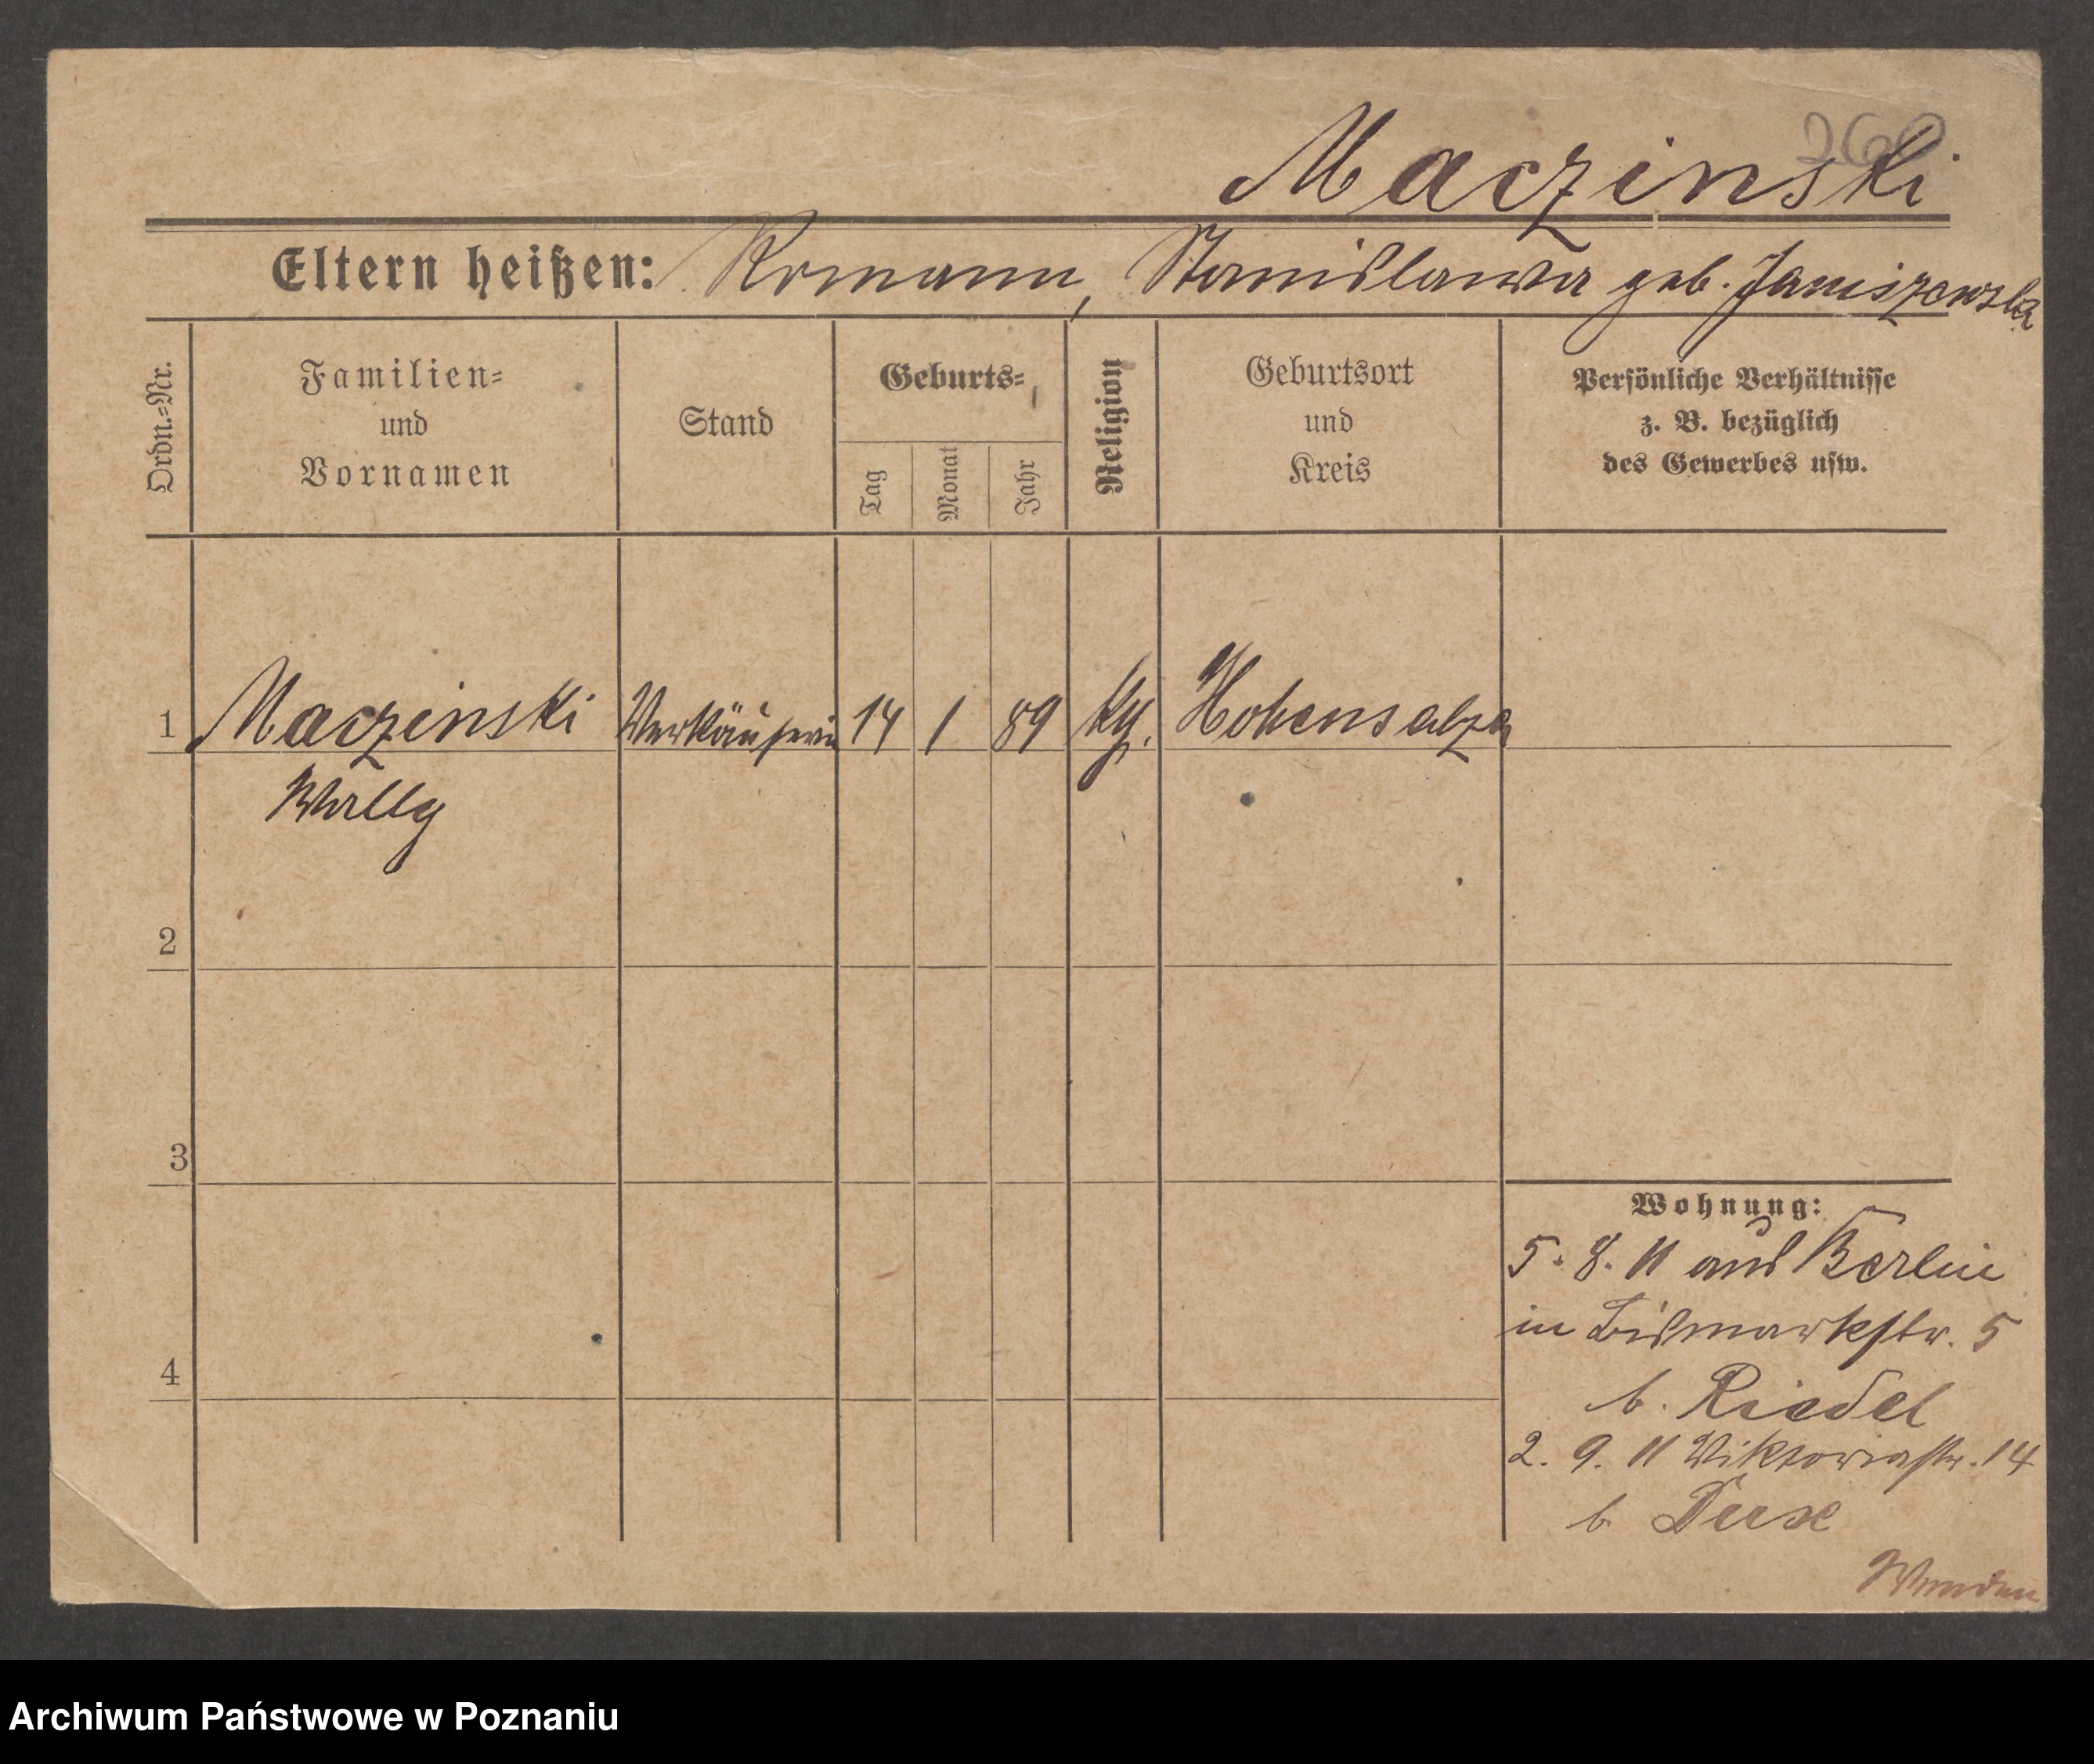 260
Maczinski
Eltern heißen: Romann, Stanislawa geb. Janiszewska
Ordn.=Nr.
Familien=
und
Vornamen
Stand
Geburts=
Tag
Monat
Jahr
Religion
Geburtsort
und
Kreis
Persönliche Verhältnisse
z. B. bezüglich
des Gewerbes usw.
1 Maczinski Verkäuferin 14 1 89 kth. Hohensalza
Wally
2
3
4
Wohnung:
5. 8. 11 aus Berlin
in Bismarkstr. 5
b. Riedel
2. 9. 11 Viktoriastr. 14
b
Wenden
Archiwum Państwowe w Poznaniu